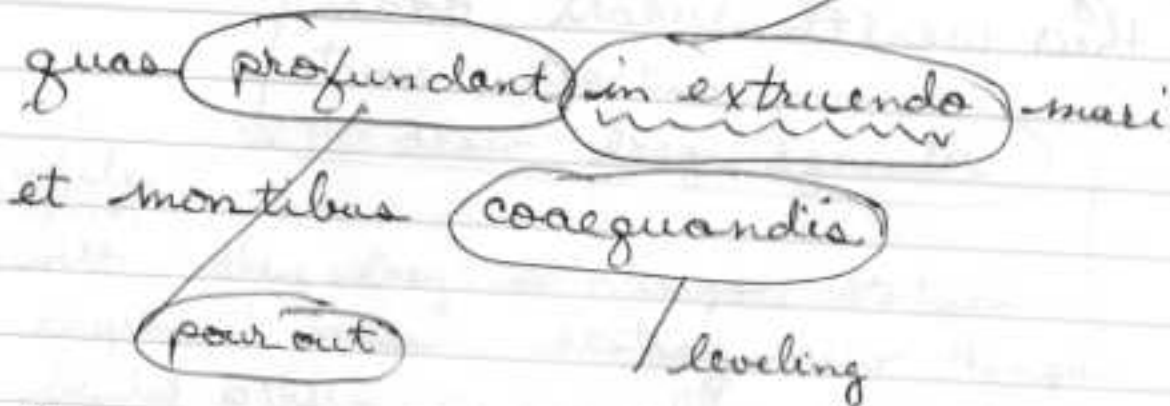 quas profundant in extruendo mari
et montibus coaequandis
pour out
leveling